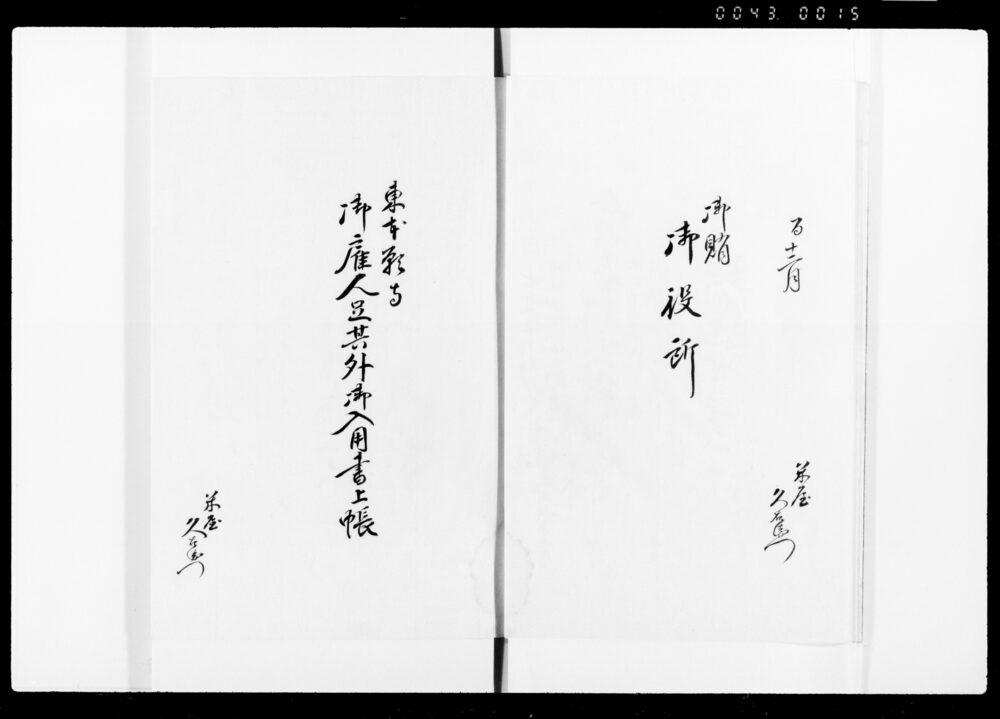 0043 0015
十二月
御賄
御役所
米屋
久右衛門
東本願寺
御雇人足其外御入用書上帳
米屋
久右衛門